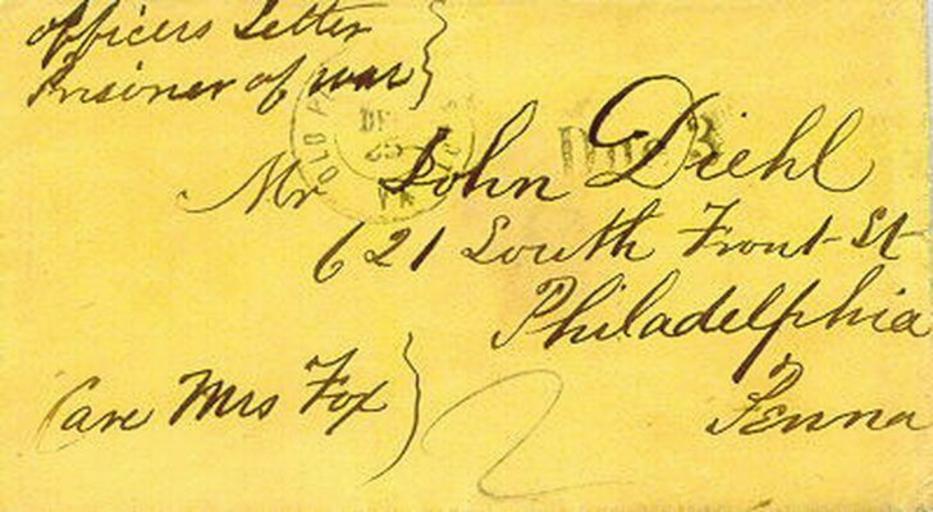 Officers Letter
Prisoner of war
OLD P
DE
25
VA
Due 3
Mr John Diehl
621 South Front St
Philadelphia
Penna
Care Mrs Fox